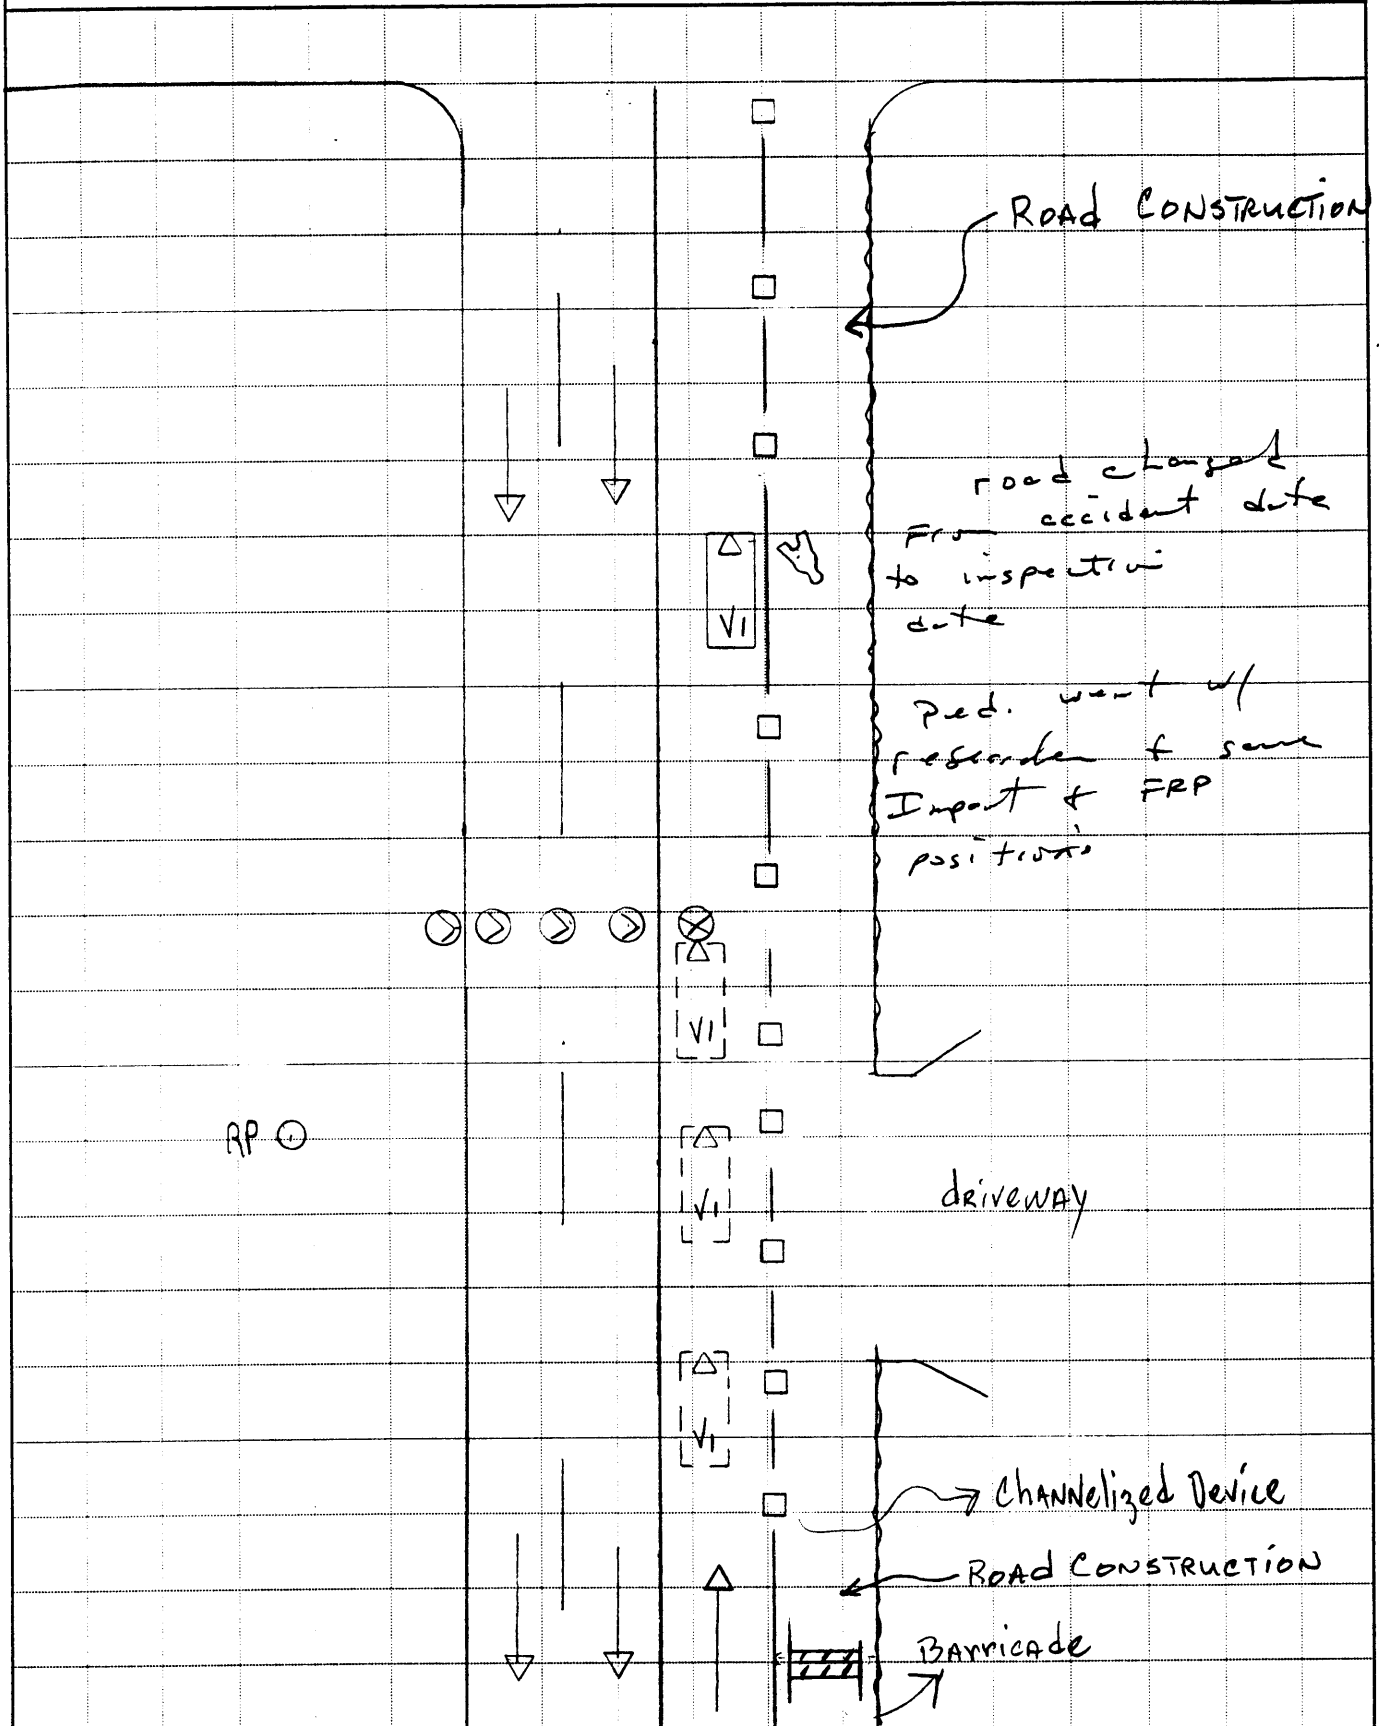 ROAd CONSTRUCTION
road changed
From accident date
to inspection
date
V1
Ped. went w/
researcher & same
Impact & FRP
positions
V1
RP
V1
driveway
V1
ChANNelized Device
ROAd CONSTRUCTION
BArricade